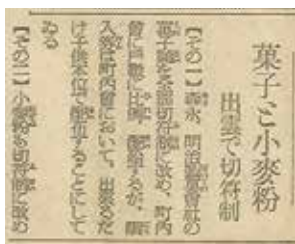 菓子と小麥粉
出雲で切符制
【その一】森永、明治製菓會社の
菓子類を全部切符制に改め、町内
會に戸數に比例 配給するが、購
入券は町內會において、出來るだ
け子供本位で配當することにして
ゐる
【その二】小麥粉も切符制に改め